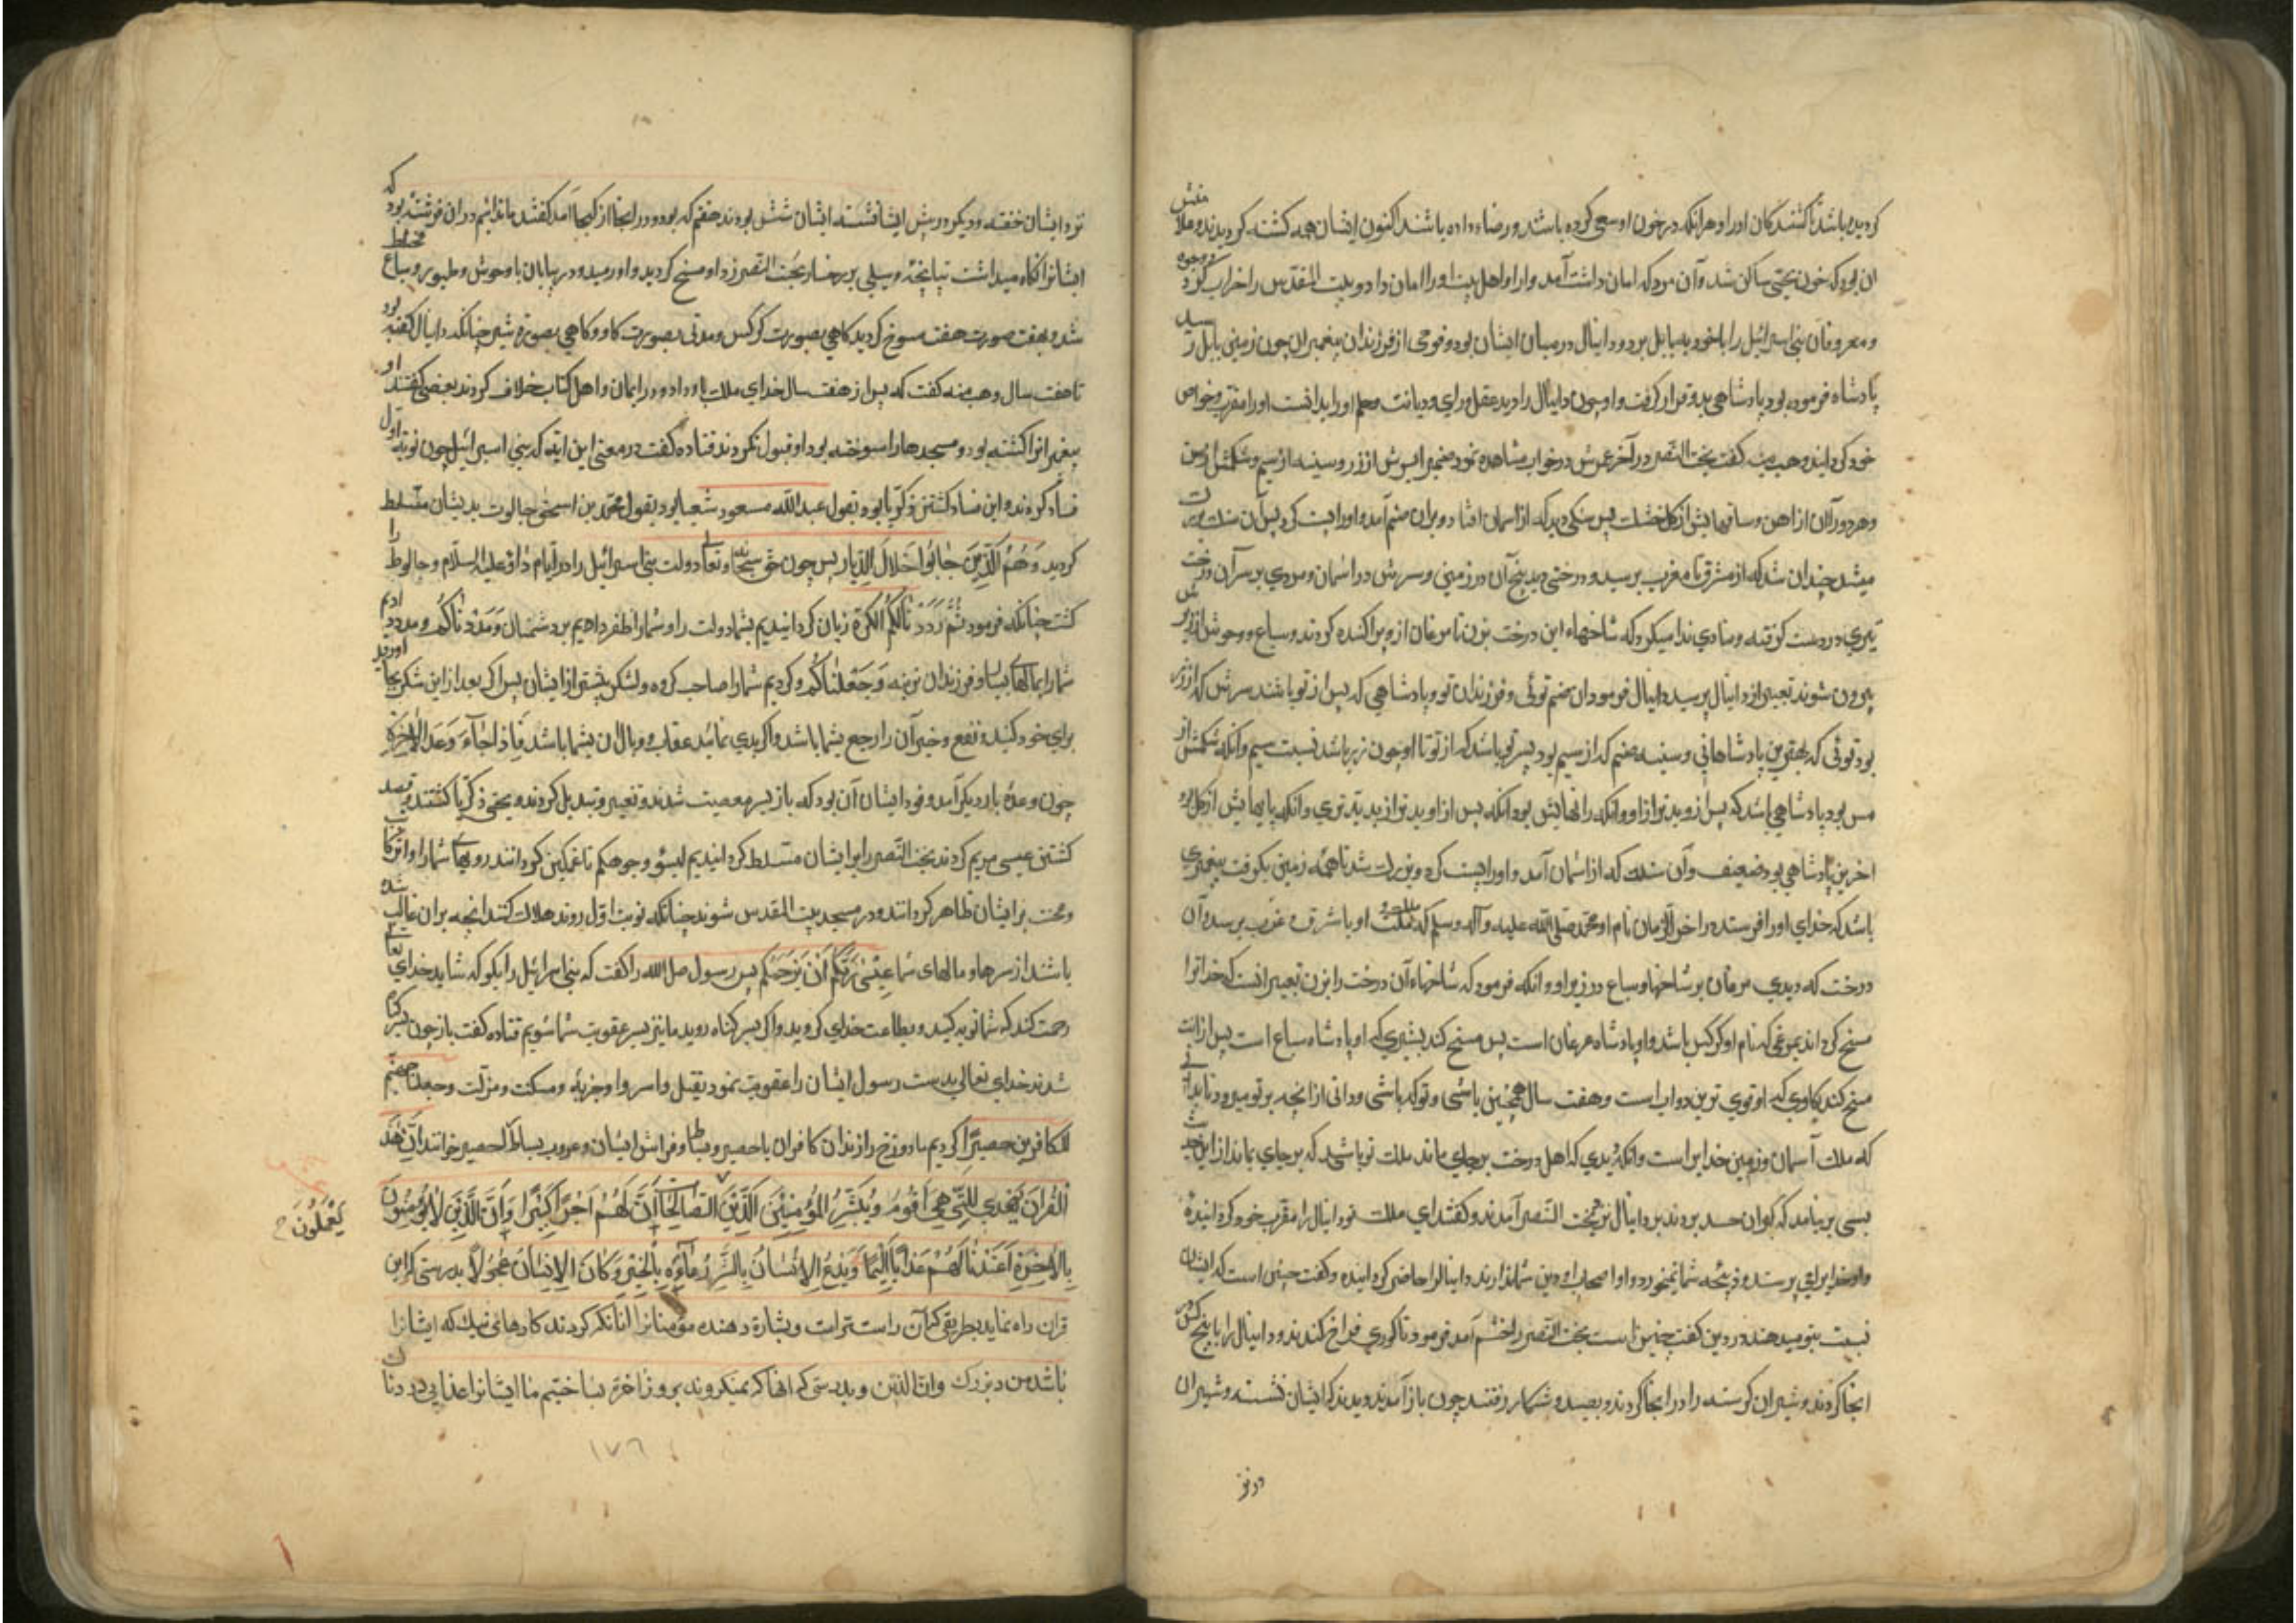 کردیده باشد تا کشندکان او را و هرانکه در خون او سعی کرده باشد و رضا داده باشند اکنون ایشان همه کشته کردیدند و
ان بود که خون یحیی ساکن شد وآن مرد که امان داشت آمد و او را و اهل بیت او را امان داد و بیت المقدس را خراب کرد
و معروفان بنی اسرائیل را با خود به بابل برد و دانیال در میان ایشان بود و قومی از فرزندان پیغمبران چون زمین بابل رسید
پادشاه فرموده بود پادشاهی بدو قرار کرفت و او چون دانیال را دید عقل و رای و دیانت و حلم او را بدانست او را مقرب و خواص
خود کردانید وهب منبه کفت بخت النصر در آخر عمرش در خواب مشاهده نمود صنمی را سرش از زر و سینه از سیم و شکمش از مس
و هر دو ران از اهن و ساقهایش از کل پس سنکی دید که از اسمان افتاد و بران صنم آمد و او را پست کرد پس آن سنک
چندان شد که از مشرق تا مغرب برسید و درختی دید بیخ آن در زمین و سرش در اسمان و مردی بر سر آن درخت
تبری در دست کرفته و منادی ندا میکرد که شاخهاء این درخت بزن تا مرغان ازو پراکنده کردند و سباع و وحوش از زیر
بیرون شوند تعبیر از دانیال پرسید دانیال فرمود ان صنم توئی و فرزندان تو و پادشاهی که پس از تو باشند سرش که از زر
بود توئی که بهترین پادشاهانی و سینه صنم که از سیم بود پسر تو باشد که از تو تا او چون زر باشد نسبت سیم و آنکه شکمش از
مس بود پادشاهی باشد که پس ازو بدتر از او وانکه رانهایش بود آنکه پس از او بدتر از بدتری وانکه پایهایش از کل بود
اخرین پادشاهی بود ضعیف وآن سنک که از اسمان آمد و او را پست کرد و بزرک شد تا همه زمین بکرفت پیغمبری
باشد که خدای او را فرستد در اخر الزمان نام او محمد صلی الله علیه وآله وسلم که مملکت او با شرق و غرب برسد و آن
درخت که دیدی مرغان بر شاخها و سباع در زیر او و انکه فرمود که شاخهاء آن درخت را بزن تعبیر انست که خدا ترا
مسخ کرداند بمرغی که نام او کرکس باشد و او پادشاه مرغان است پس مسخ کند بشیری که او پادشاه سباع است پس ازان
مسخ کند بکاوی که او قوی ترین دواب است و هفت سال همچنین باشی و تو که باشی و دانی از انچه بر تو میرود تا بدانی
که ملک آسمان و زمین خدایراست وانکه دیدی که اصل درخت بر جای ماند ملک تو باشد که بر جای بماند از این حدیث
بسی بر نیامد که کبران حسد بردند بر دانیال نزد بخت النصر آمدند و کفتند ای ملک تو دانیال را مقرب خود کردانیده
و او خدایرا می پرستد و ذبیحه شما نمیخورد و او و اصحاب او دین شما ندارند دانیال را حاضر کردانیده و کفت چنین است که ایشان
نسبت بتو میدهند در دین کفت چنین است بخت النصر را خشم آمد فرمود تا کوری فراخ کندند و دانیال را با پنج کس در
انجا کردند و شیران کرسنه را در انجا کردند و بصید و شکار رفتند چون باز آمدند دیدند که ایشان نشسته و شیران
نزد ایشان خفته و دیکر درپیش ایشان نشسته ایشان شش بودند هفتم که بود و در انجا از کجا آمد کفتند ما ندانیم و ان فرشته بود که
ایشانرا نکاه میداشت تپانچه وسیلی بر رخسار بخت النصر زد او مسخ کردید و او رمید و در بیابان با وحوش و طیور و سباع مختلط
شد و بهفت صورت هفت مسوخ کردید کاهی بصورت کرکس و مدتی بصورت کاو و کاهی بصورة شیر چنانکه دانیال کفته بود
تا هفت سال وهب منبه کفت که پس از هفت سال خدای ملک باو داد و در ایمان او اهل کتاب خلاف کردند بعضی کفتند او
پیغمبرانرا کشته بود و مسجدها را سوخته بود او قبول نکردند قتاده کفت در معنی این ایه که بنی اسرائیل چون نوبة اول
فساد کردند و این فساد کشتن زکریا بود و بقول عبدالله مسعود شعیا بود و بقول محمد بن اسحق جالوت بدیشان مسلط
کردید وَهُمُ الَّذِینَ جَاسُوا خِلَالَ الدِّیار پس چون حق سبحانه و تعالی دولت بنی اسرائیل را در ایام داؤد علیه السلام و جالوط را
کشت چنانکه فرمود ثُمَّ رَدَدْنَا لَکُمُ الکَرَّةَ زیان کردانیدیم بشما دولت را و شما را ظفر دادیم بر دشمنان وَمَدَدْنَاکُم و مدد دادیم
شما را بمالهای بسیار و فرزندان نرینه وَجَعَلْنَاکُمْ و کردیم شما را صاحب کروه و لشکر بیشتر از ایشان پس اکر بعد از این شکر بجا اورید
برای خود کنید و نفع و خیر آن راجع بشما باشد و اکر بدی نمائید عقاب و وبال ان بشما باشد فَاِذَا جَآءَ وَعْدُ الْاٰخِرَةِ
چون وعدۀ بار دیکر آمد و فود ایشان آن بود که باز بسر معصیت شدند و تغییر و تبدیل کردند و یحیی ذکریا کشتند و قصد
کشتن عیسی مریم کردند بخت النصر را بر ایشان مسلط کردانیدیم لیسؤ وجوهکم تا غمکین کردانند رویهای شما را و اثر
و محنت بر ایشان ظاهر کردانند و در مسجد بیت المقدس شوند چنانکه نوبت اول روند هلاک کنند انچه بران غالب شده
باشند از سرها و مالهای شما عَسٰی رَبُّکُمْ اَنْ یَرْحَمَکُم پس رسول صلی الله را کفت که بنی اسرائیل را بکو که شاید خدای تعالی
رحمت کند که شما توبه کنید و بطاعت خدای کروید و اکر بسر کناه روید ما نیز بسر عقوبت شما شویم قتاده کفت باز چون بسر کناه
شدند خدای تعالی بدست رسول ایشان را عقوبت نمود بقتل و اسر و جزیه و مسکنت و مزلت وجعلنا جهنم
للکافرین حصیرا کردیم ما دوزخ را زندان کافران یا حصیر و بساط و فراش ایشان و عرب بساط را حصیر خوانند اِنَّ هٰذَا
الْقُرانَ یَهْدِی لِلَّتِی هِیَ اَقْوَمُ وَیُبَشِّرُ الْمُؤمِنِینَ الَّذِینَ الصَّالِحَاتِ اَنَّ لَهُمْ اَجْرًا کَبِیْرًا وَاَنَّ الَّذِینَ لَا یُؤمِنُونَ
یَعْمَلُونَ
بِالْاٰخِرَةِ اَعْتَدْنَا لَهُمْ عَذَابًا اَلِیمًا وَیَدْعُ الْاِنْسَانُ بِالشَّرِّ دُعَآءَهُ بِالْخَیْرِ وَکَانَ الْاِنْسَانُ عَجُولاً بدرستی که این
قران راه نماید بطریقی که آن راست تراست و بشارة دهنده مؤمنانرا انانکه کردند کارهائی نیک که ایشانرا
باشد مزد بزرک وان الذین و بدرستی که انها که نمیکروند بروز اخرت بساختیم ما ایشانرا عذابی دردناک
۱۷٦